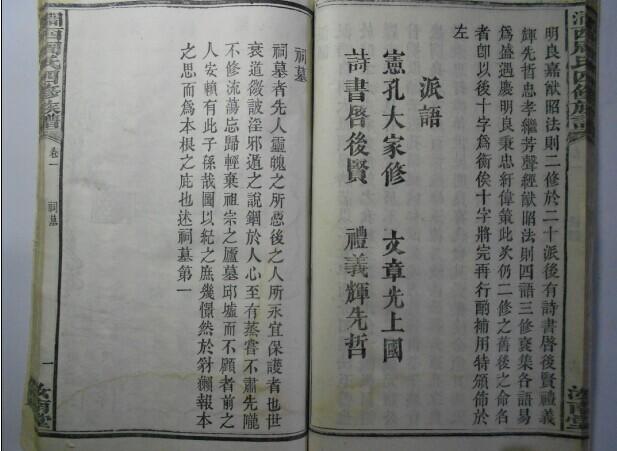 明良嘉猷昭法則二修於二十派後有詩書啓後賢禮義
輝先哲忠孝繼芳聲經猷昭法則四語三修裒集各語易
爲盛遇慶明良秉忠新偉策此次仍二修之舊後之命名
者卽以後十字爲銜俟十字將完再行酌補用特頒餙於
左
派語
憲孔大家修　文章光上國
詩書啓後賢　禮義輝先哲
汝南堂
祠墓
祠墓者先人靈魄之所憑後之人所永宜保護者也世
衰道微詖淫邪遁之說錮於人心至有蒸嘗不肅先隴
不修流蕩忘歸輕棄祖宗之廬墓邱墟而不顧者前之
人安賴有此子孫哉圖以紀之庶幾憬然於豺獺報本
之思而爲本根之庇也述祠墓第一
澗西周氏四修族譜
卷一
祠墓
一
汝南堂